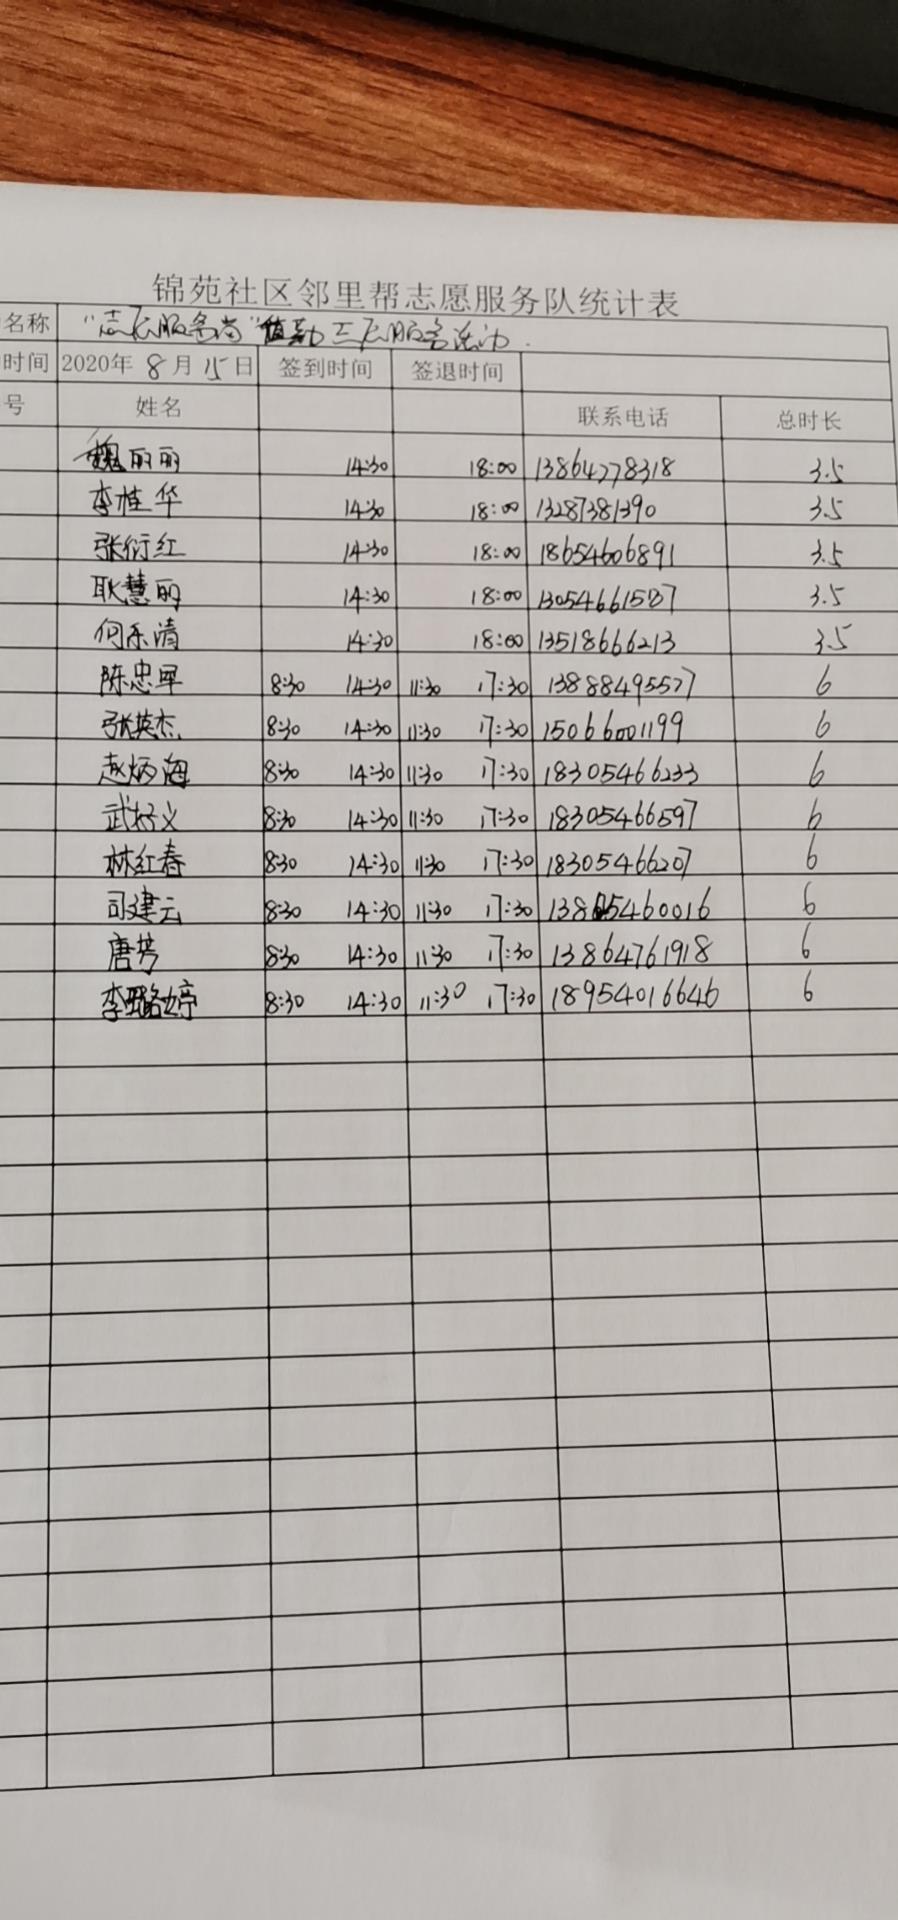 锦苑社区邻里帮志愿服务队统计表
名称 "志愿服务岗"值勤志愿服务活动.
时间 2020年 8 月 15 日 签到时间 签退时间
号 姓名 联系电话 总时长
魏丽丽 14:30 18:00 13864778318 3.5
李桂华 14:30 18:00 13287381390 3.5
张衍红 14:30 18:00 18654606891 3.5
耿慧丽 14:30 18:00 3.5
何乐清 14:30 18:00 13518666213 3.5
陈忠军 8:30 14:30 11:30 17:30 13888495577 6
张英杰 8:30 14:30 11:30 17:30 15066001199 6
赵炳海 8:30 14:30 11:30 17:30 18305466233 6
武好义 8:30 14:30 11:30 17:30 18305466597 6
林红春 8:30 14:30 11:30 17:30 18305466207 6
司建云 8:30 14:30 11:30 17:30 6
唐芳 8:30 14:30 11:30 17:30 13864761918 6
李璐婷 8:30 14:30 11:30 17:30 18954016646 6